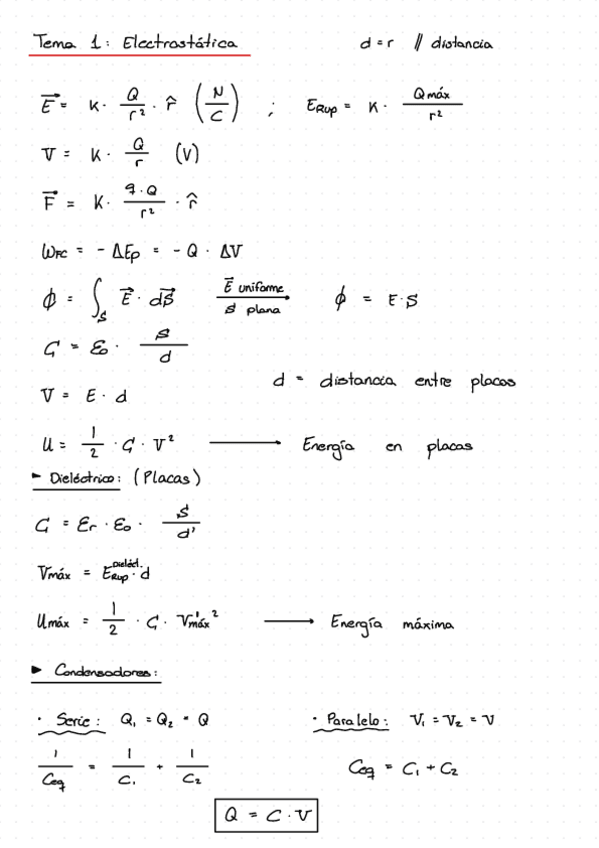 Tema 1: Electrostática d = r // distancia
E⃗ = K · Q/r² · r̂ (N/C) ; E_Rup = K · Qmáx/r²
V = K · Q/r (V)
F⃗ = K · q·Q/r² · r̂
W_FC = - ΔEp = - Q · ΔV
ϕ = ∫_S E⃗ · dS⃗ E⃗ uniforme / S plana → ϕ = E·S
C = ε₀ · S/d
d = distancia entre placas
V = E · d
U = 1/2 · C · V² → Energía en placas
► Dieléctrico: (Placas)
C = εr · ε₀ · S/d'
Vmáx = E_Rup^Dieléct. · d
Umáx = 1/2 · C · V'máx² → Energía máxima
► Condensadores:
· Serie: Q₁ = Q₂ = Q · Paralelo: V₁ = V₂ = V
1/Ceq = 1/C₁ + 1/C₂ Ceq = C₁ + C₂
Q = C · V